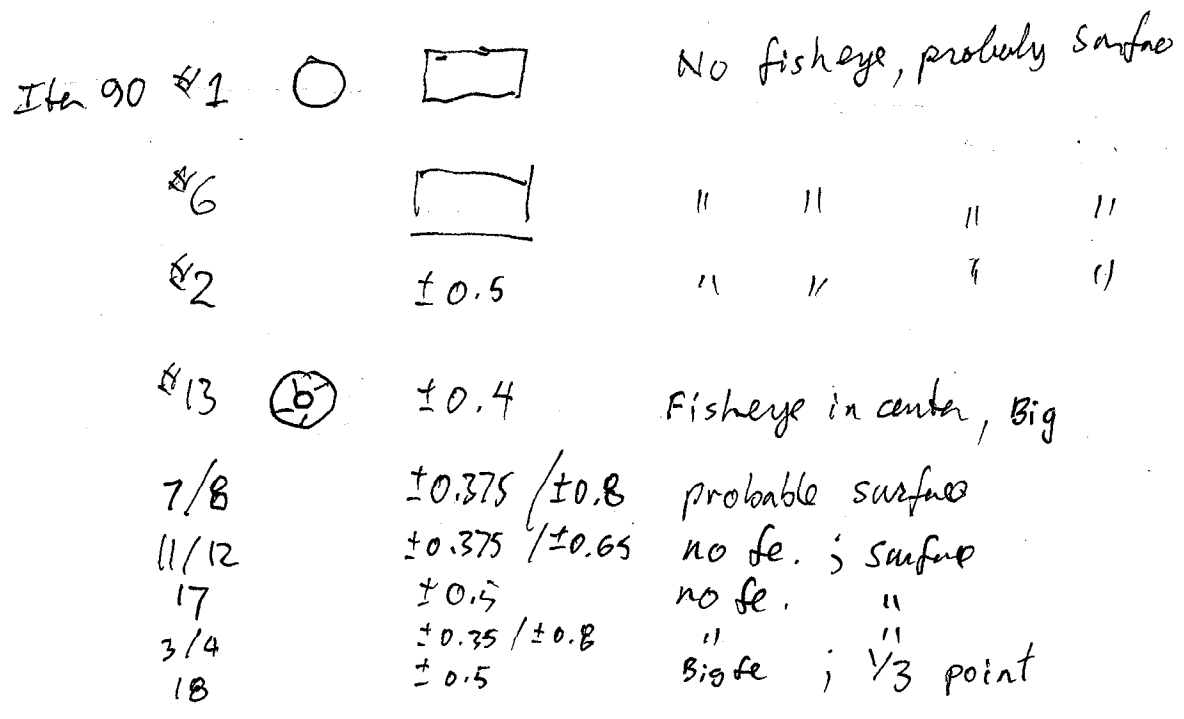 Item 90 #1 No fisheye, probably surface
#6 " " " "
#2 ±0.5 " " " "
#13 ±0.4 Fisheye in center, Big
7/8 ±0.375 / ±0.8 probable surface
11/12 ±0.375 / ±0.65 no fe. ; surface
17 ±0.5 no fe. "
3/4 ±0.35 / ±0.8 " "
18 ±0.5 Big fe ; 1/3 point